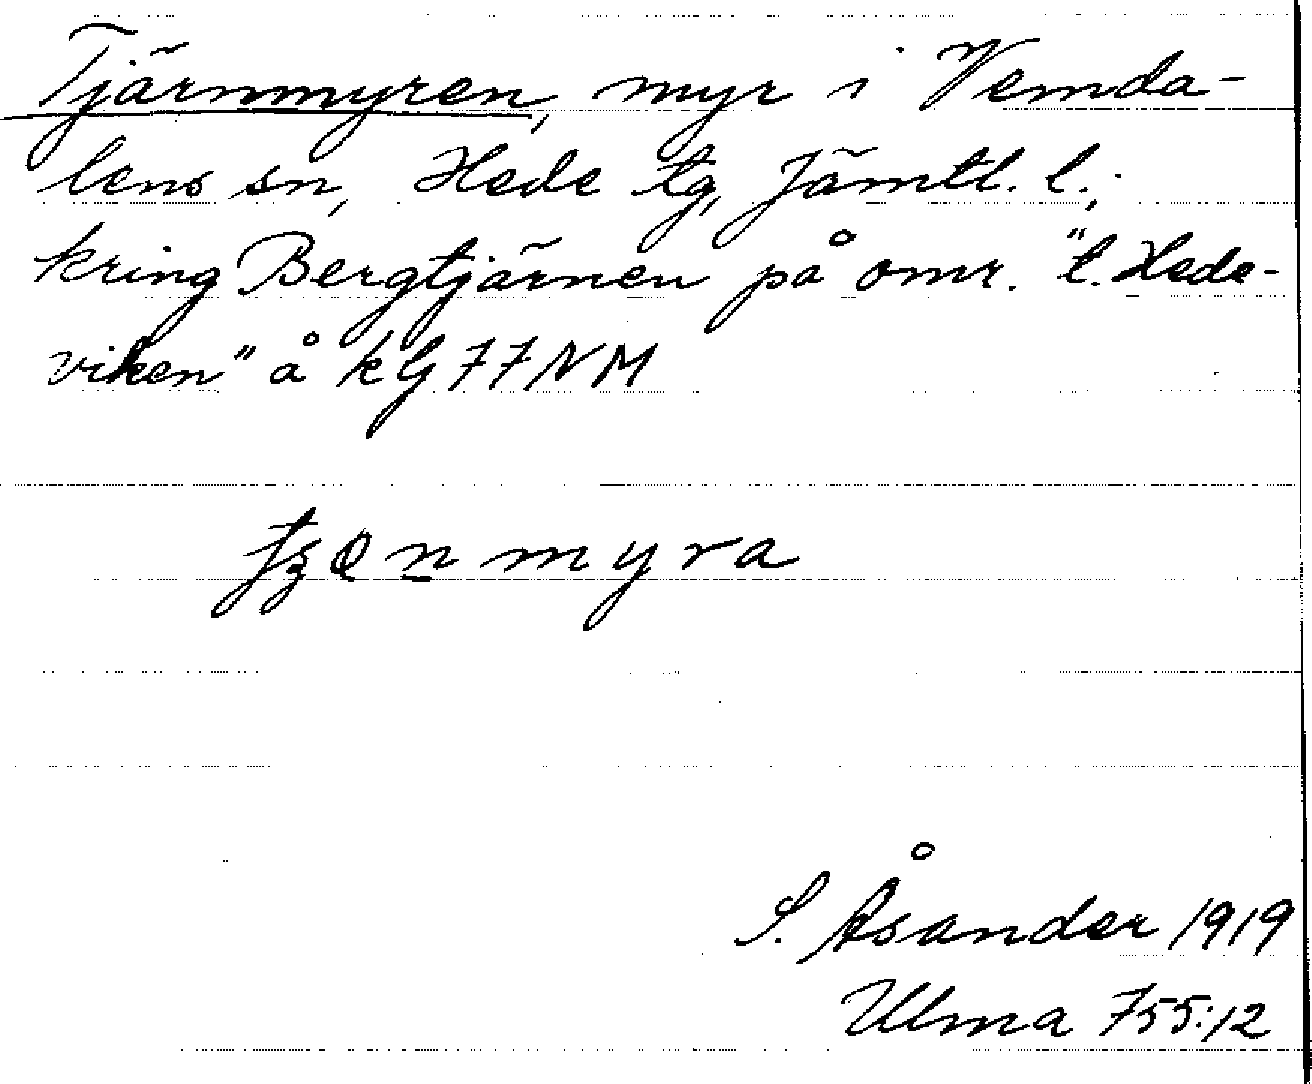 Tjärnmyren, myr i Vemda-
lens sn, Hede tg, Jämtl. l.;
kring Bergtjärnen på omr. "t. Hede-
viken" å kG 77 NM
myra
S. Åsander 1919
Ulma 755:12